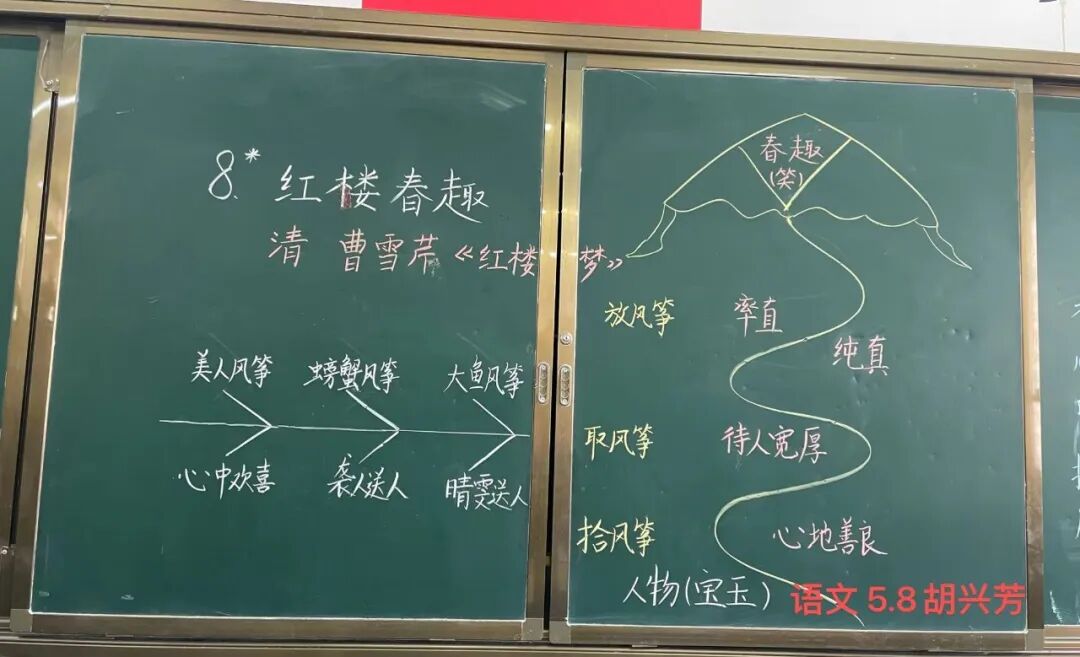 8.* 红楼春趣
清 曹雪芹《红楼梦》
美人风筝 螃蟹风筝 大鱼风筝
心中欢喜 袭人送人 晴雯送人
春趣
(笑)
放风筝 率直
纯真
取风筝 待人宽厚
拾风筝 心地善良
人物(宝玉)
语文 5.8 胡兴芳